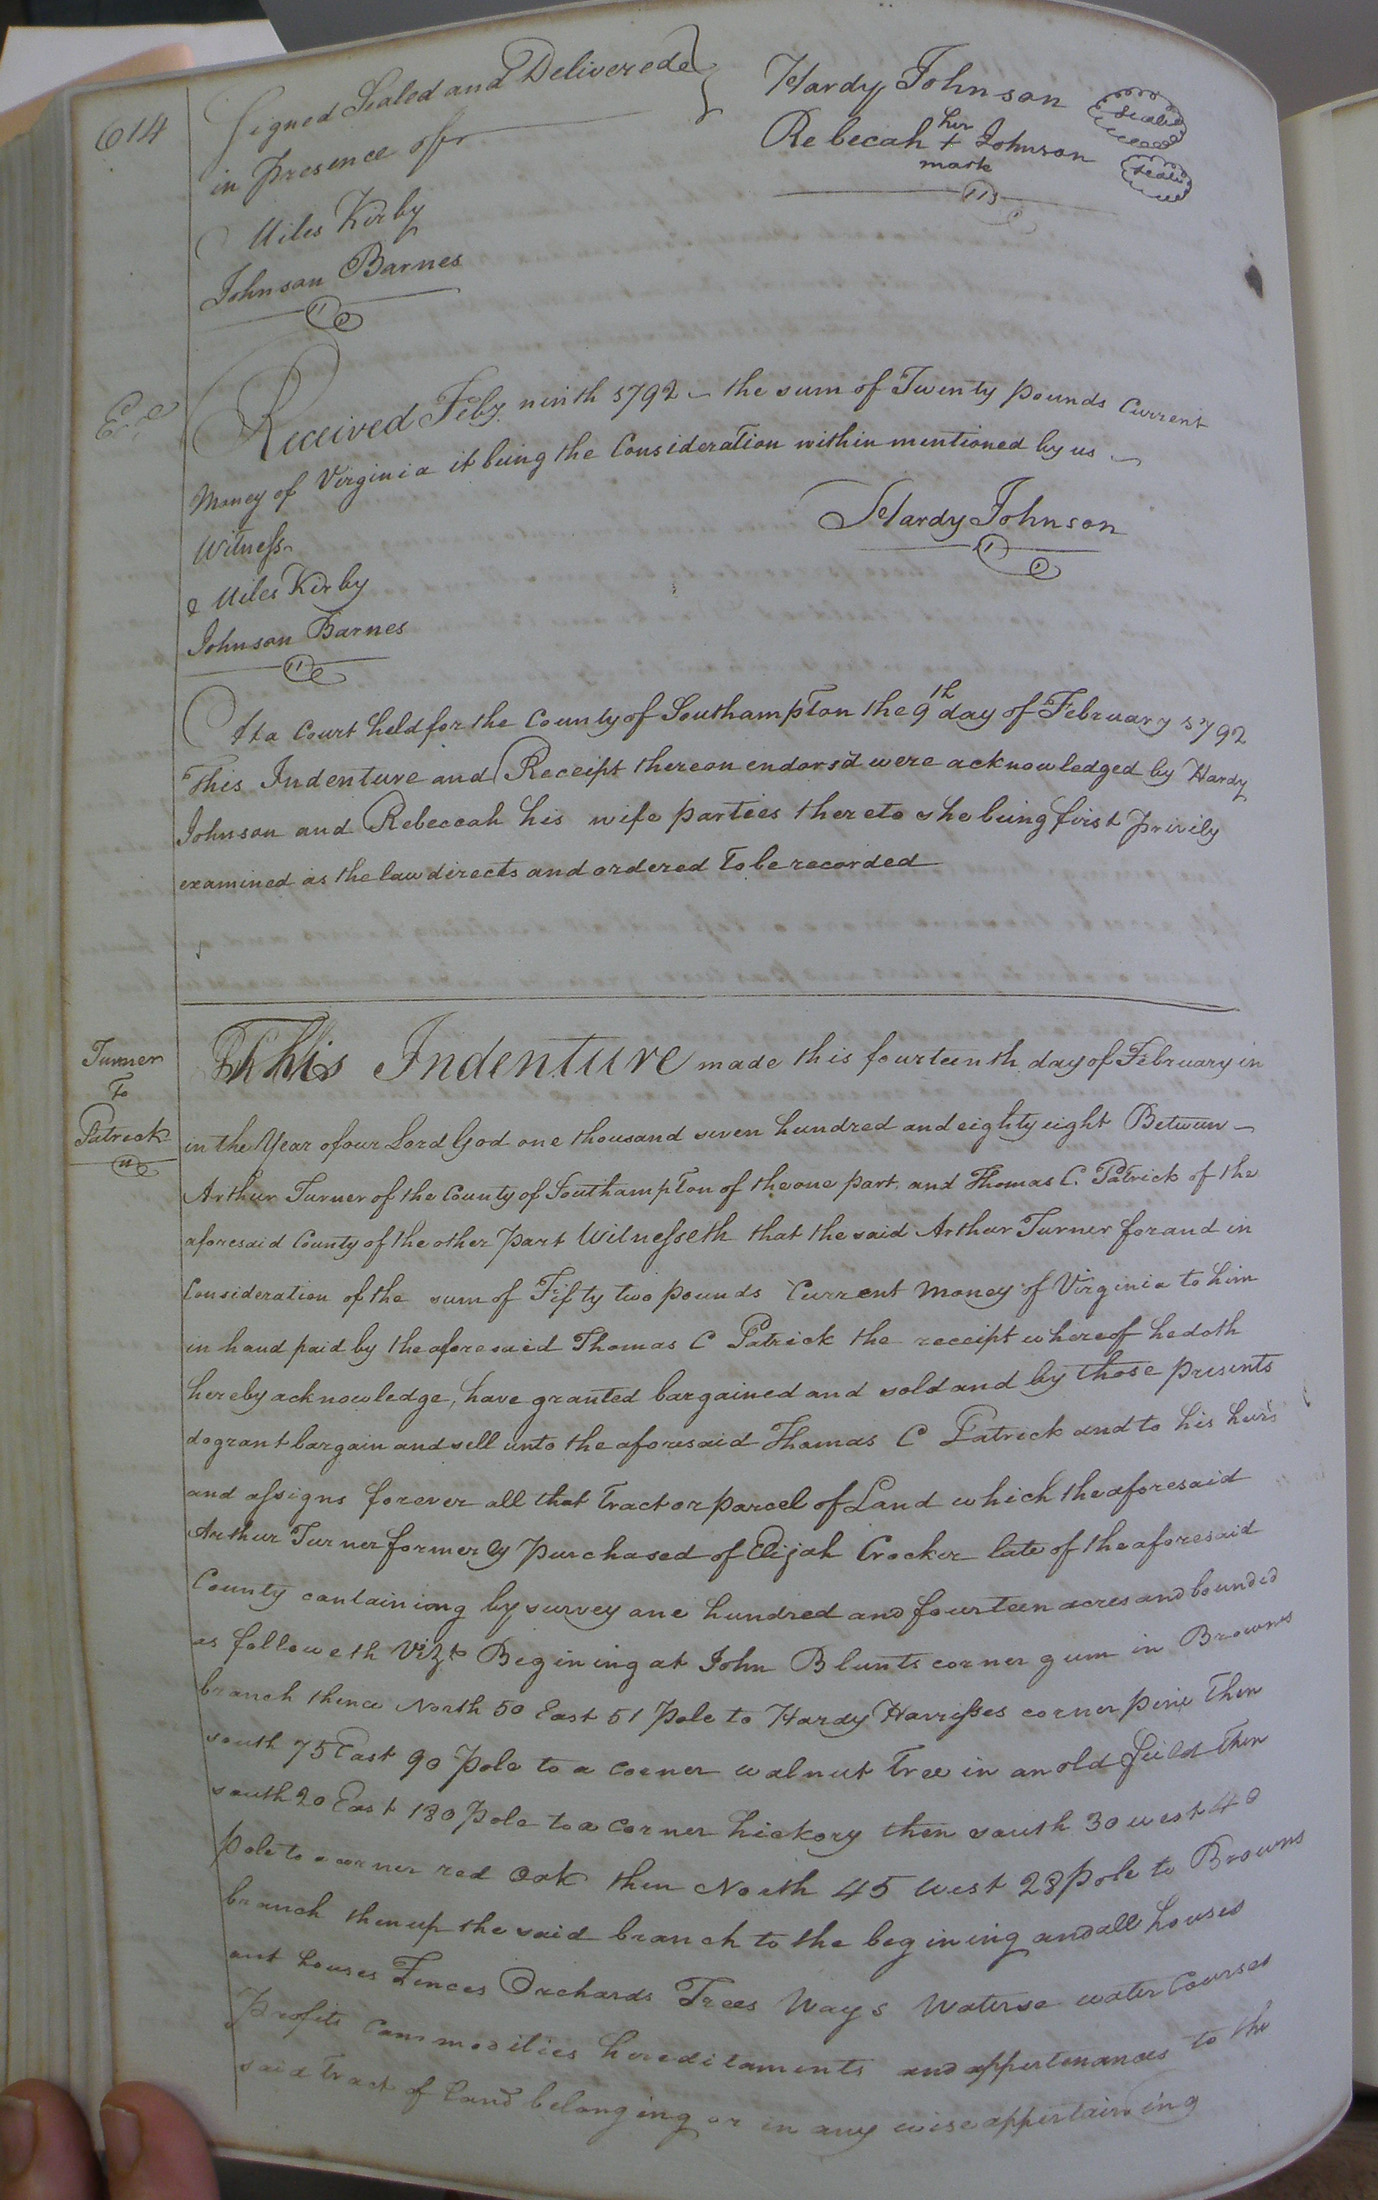 614
Signed Sealed and Delivered
in presence off
Miles Kirby
Johnson Barnes
Hardy Johnson seal
Rebecah her + mark Johnson seal
Exd
Received Feby ninth 1792 the sum of Twenty pounds Current
Money of Virginia it being the Consideration within mentioned by us
Hardy Johnson
Witness
Miles Kirby
Johnson Barnes
At a Court held for the County of Southampton the 9th day of February 1792
This Indenture and Receipt thereon endors'd were acknowledged by Hardy
Johnson and Rebeccah his wife parties thereto she being first privily
examined as the law directs and ordered To be recorded
Turner
To
Patrick
This Indenture made this fourteenth day of February in
in the Year of our Lord God one thousand seven hundred and eighty eight Between
Arthur Turner of the County of Southampton of the one part and Thomas C. Patrick of the
aforesaid County of the other Part Witnesseth that the said Arthur Turner for and in
Consideration of the sum of Fifty two pounds Current Money of Virginia to him
in hand paid by the aforesaid Thomas C Patrick the receipt whereof he doth
hereby acknowledge, have granted bargained and sold and by these presents
do grant bargain and sell unto the aforesaid Thomas C Patrick and to his heirs
and assigns forever all that Tract or parcel of Land which the aforesaid
Arthur Turner formerly Purchased of Elijah Crocker late of the aforesaid
County containiong by survey one hundred and fourteen acres and bounded
as followeth Vizt Begining at John Blunts corner gum in Browns
branch thence North 50 East 51 Pole to Hardy Harrisses corner pine Then
south 75 East 90 Pole to a corner walnut Tree in an old field Then
south 20 East 180 Pole to a corner hickory then south 30 west 40
Pole to a corner red Oak then North 45 West 28 Pole to Browns
branch then up the said branch to the begining and all houses
out houses Fences Orchards Trees Ways Waterse water Courses
Profits Commodities hereditaments and appertenances to the
said Tract of Land belonging or in any wise appertaining